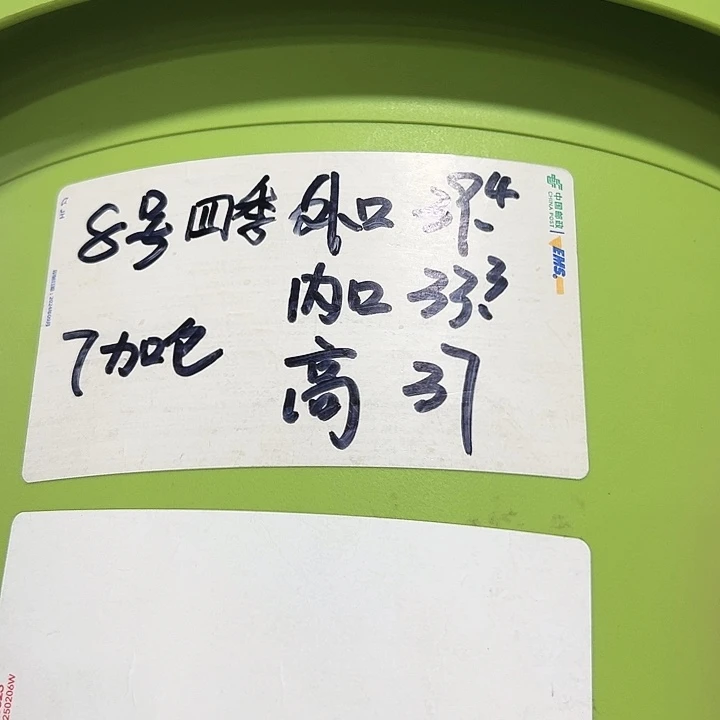 8号四季 外口 39.4
内口 33.3
7加仑 高 37
中国邮政
CHINA POST
EMS
250206W